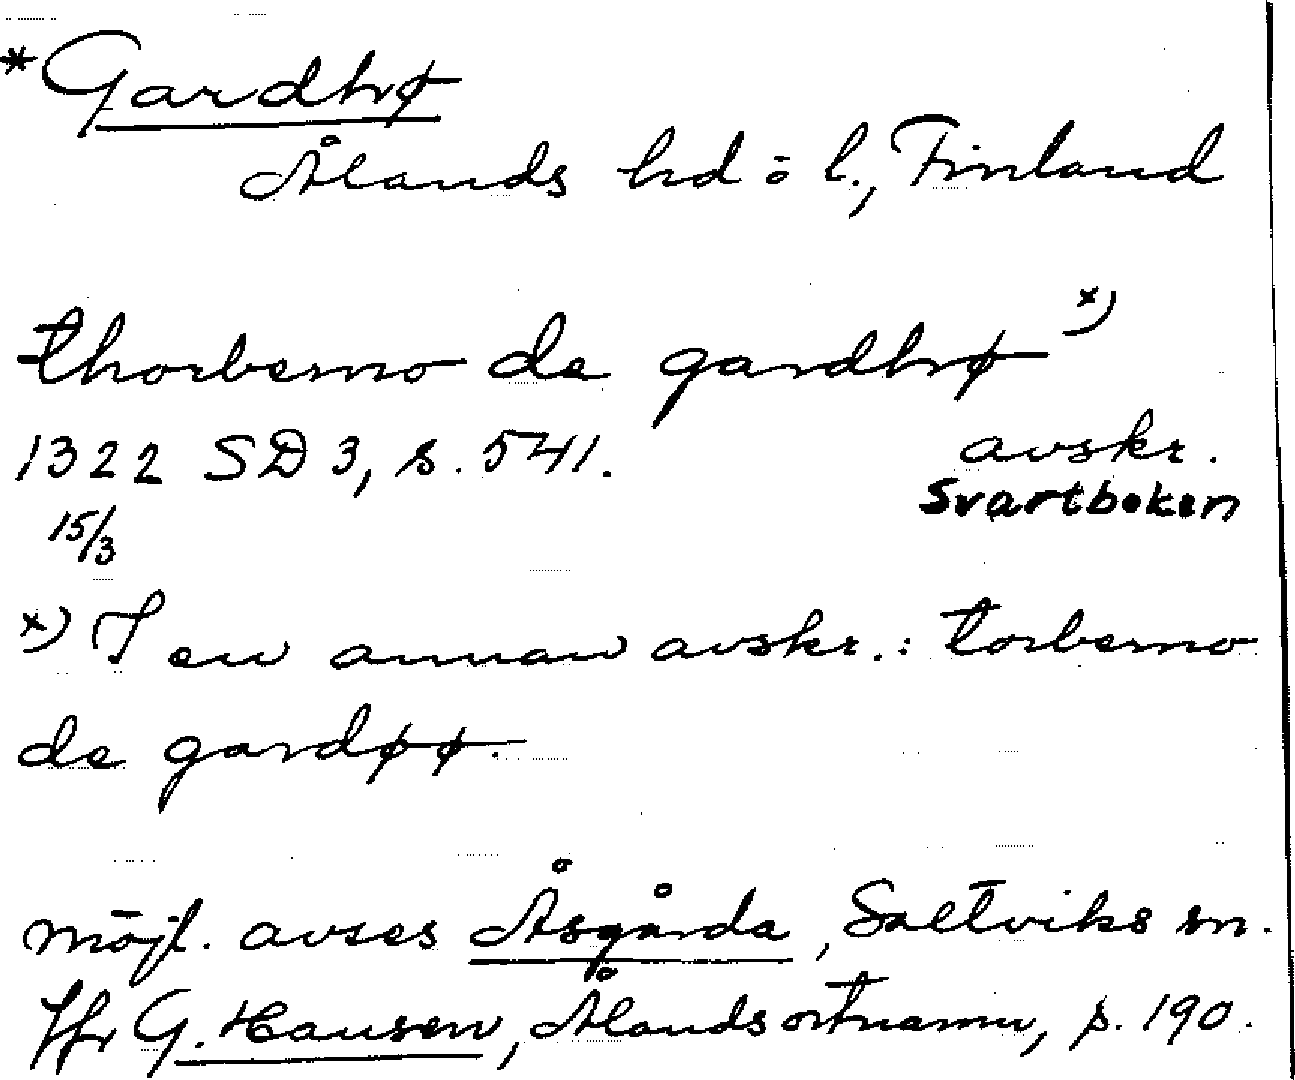 *Gardhrø
Ålands hd ö l., Finland
thorberno de gardhrø x)
1322 SD 3, s. 541. avskr.
Svartboken
15/3
x) I en annan avskr.: torberno
de gardøø.
möjl. avses Åsgårda, Saltviks sn.
Jfr G. Hausen, Ålands ortnamn, p. 190.